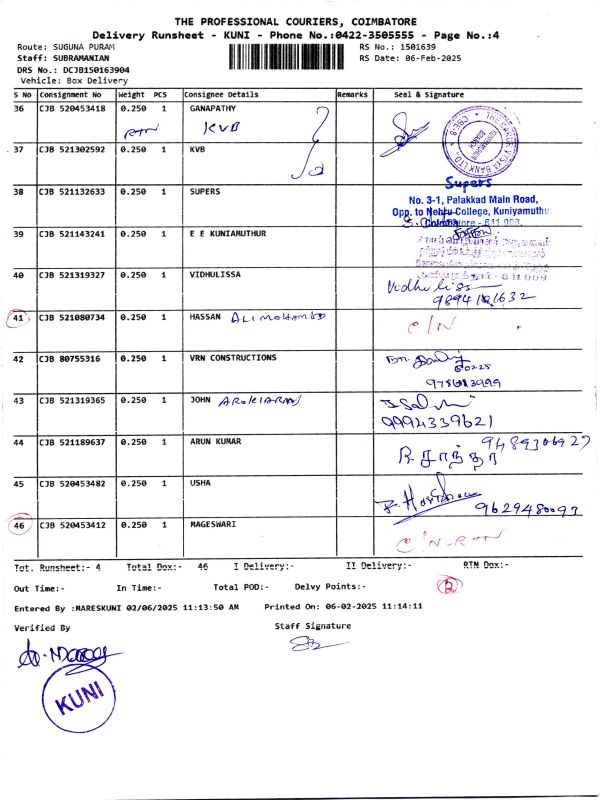 THE PROFESSIONAL COURIERS, COIMBATORE
Delivery Runsheet - KUNI - Phone No.:0422-3505555 - Page No.:4
Route: SUGUNA PURAM RS No.: 1501639
Staff: SUBRAMANIAN RS Date: 06-Feb-2025
DRS No.: DCJB150163904
Vehicle: Box Delivery
S No Consignment No Weight PCS Consignee Details Remarks Seal & Signature
36 CJB 520453418 0.250 1 GANAPATHY
RTN KVB
37 CJB 521302592 0.250 1 KVB
38 CJB 521132633 0.250 1 SUPERS
Supers
No. 3-1, Palakkad Main Road,
Opp. to Nehru College, Kuniyamuthur
Coimbatore - 641 008.
39 CJB 521143241 0.250 1 E E KUNIAMUTHUR
40 CJB 521319327 0.250 1 VIDHULISSA
Vidhulissa
41 CJB 521080734 0.250 1 HASSAN ALI MOHAMED C/N
42 CJB 80755316 0.250 1 VRN CONSTRUCTIONS
43 CJB 521319365 0.250 1 JOHN AROKIARAJ
9994339621
44 CJB 521189637 0.250 1 ARUN KUMAR
R. சாந்தா
45 CJB 520453482 0.250 1 USHA
9629480097
46 CJB 520453412 0.250 1 MAGESWARI C/N-RTN
Tot. Runsheet:- 4 Total Dox:- 46 I Delivery:- II Delivery:- RTN Dox:-
Out Time:- In Time:- Total POD:- Delvy Points:- 2
Entered By :MARESKUNI 02/06/2025 11:13:50 AM Printed On: 06-02-2025 11:14:11
Verified By Staff Signature
KUNI